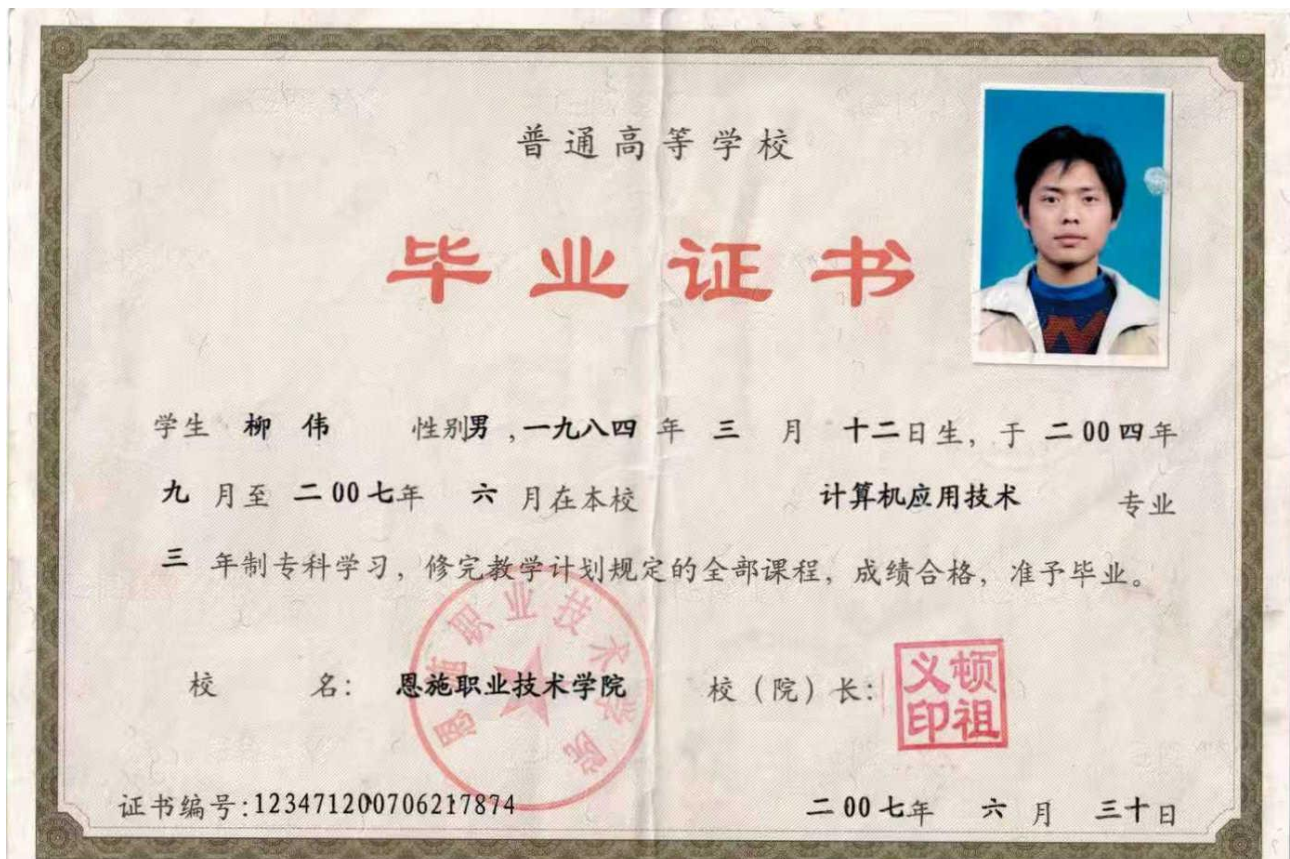 普通高等学校
毕业证书
学生 柳 伟 性别男,一九八四 年 三 月 十二日生, 于 二00四年
九 月至 二00七年 六 月在本校 计算机应用技术 专业
三 年制专科学习, 修完教学计划规定的全部课程, 成绩合格, 准予毕业。
恩施职业技术学院
校 名: 恩施职业技术学院 校(院)长:
顿祖义印
证书编号:123471200706217874 二00七年 六 月 三十日